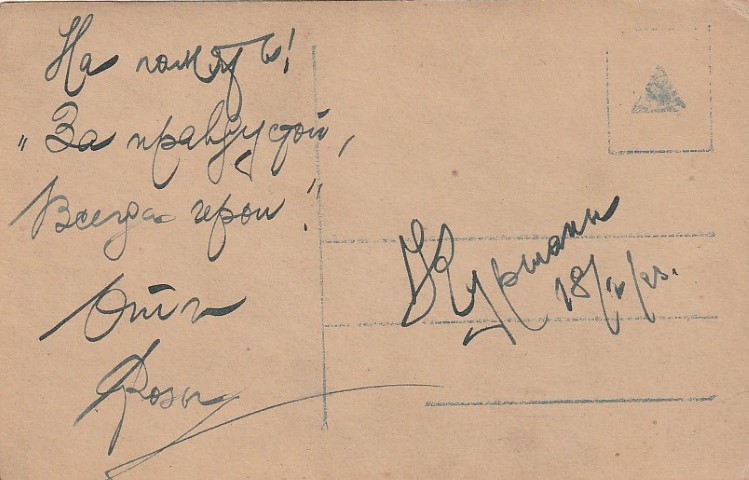 На помять!
"За правду стой,
Всегда герои!"
Отъ
Розы
Курманы
18/V/23.